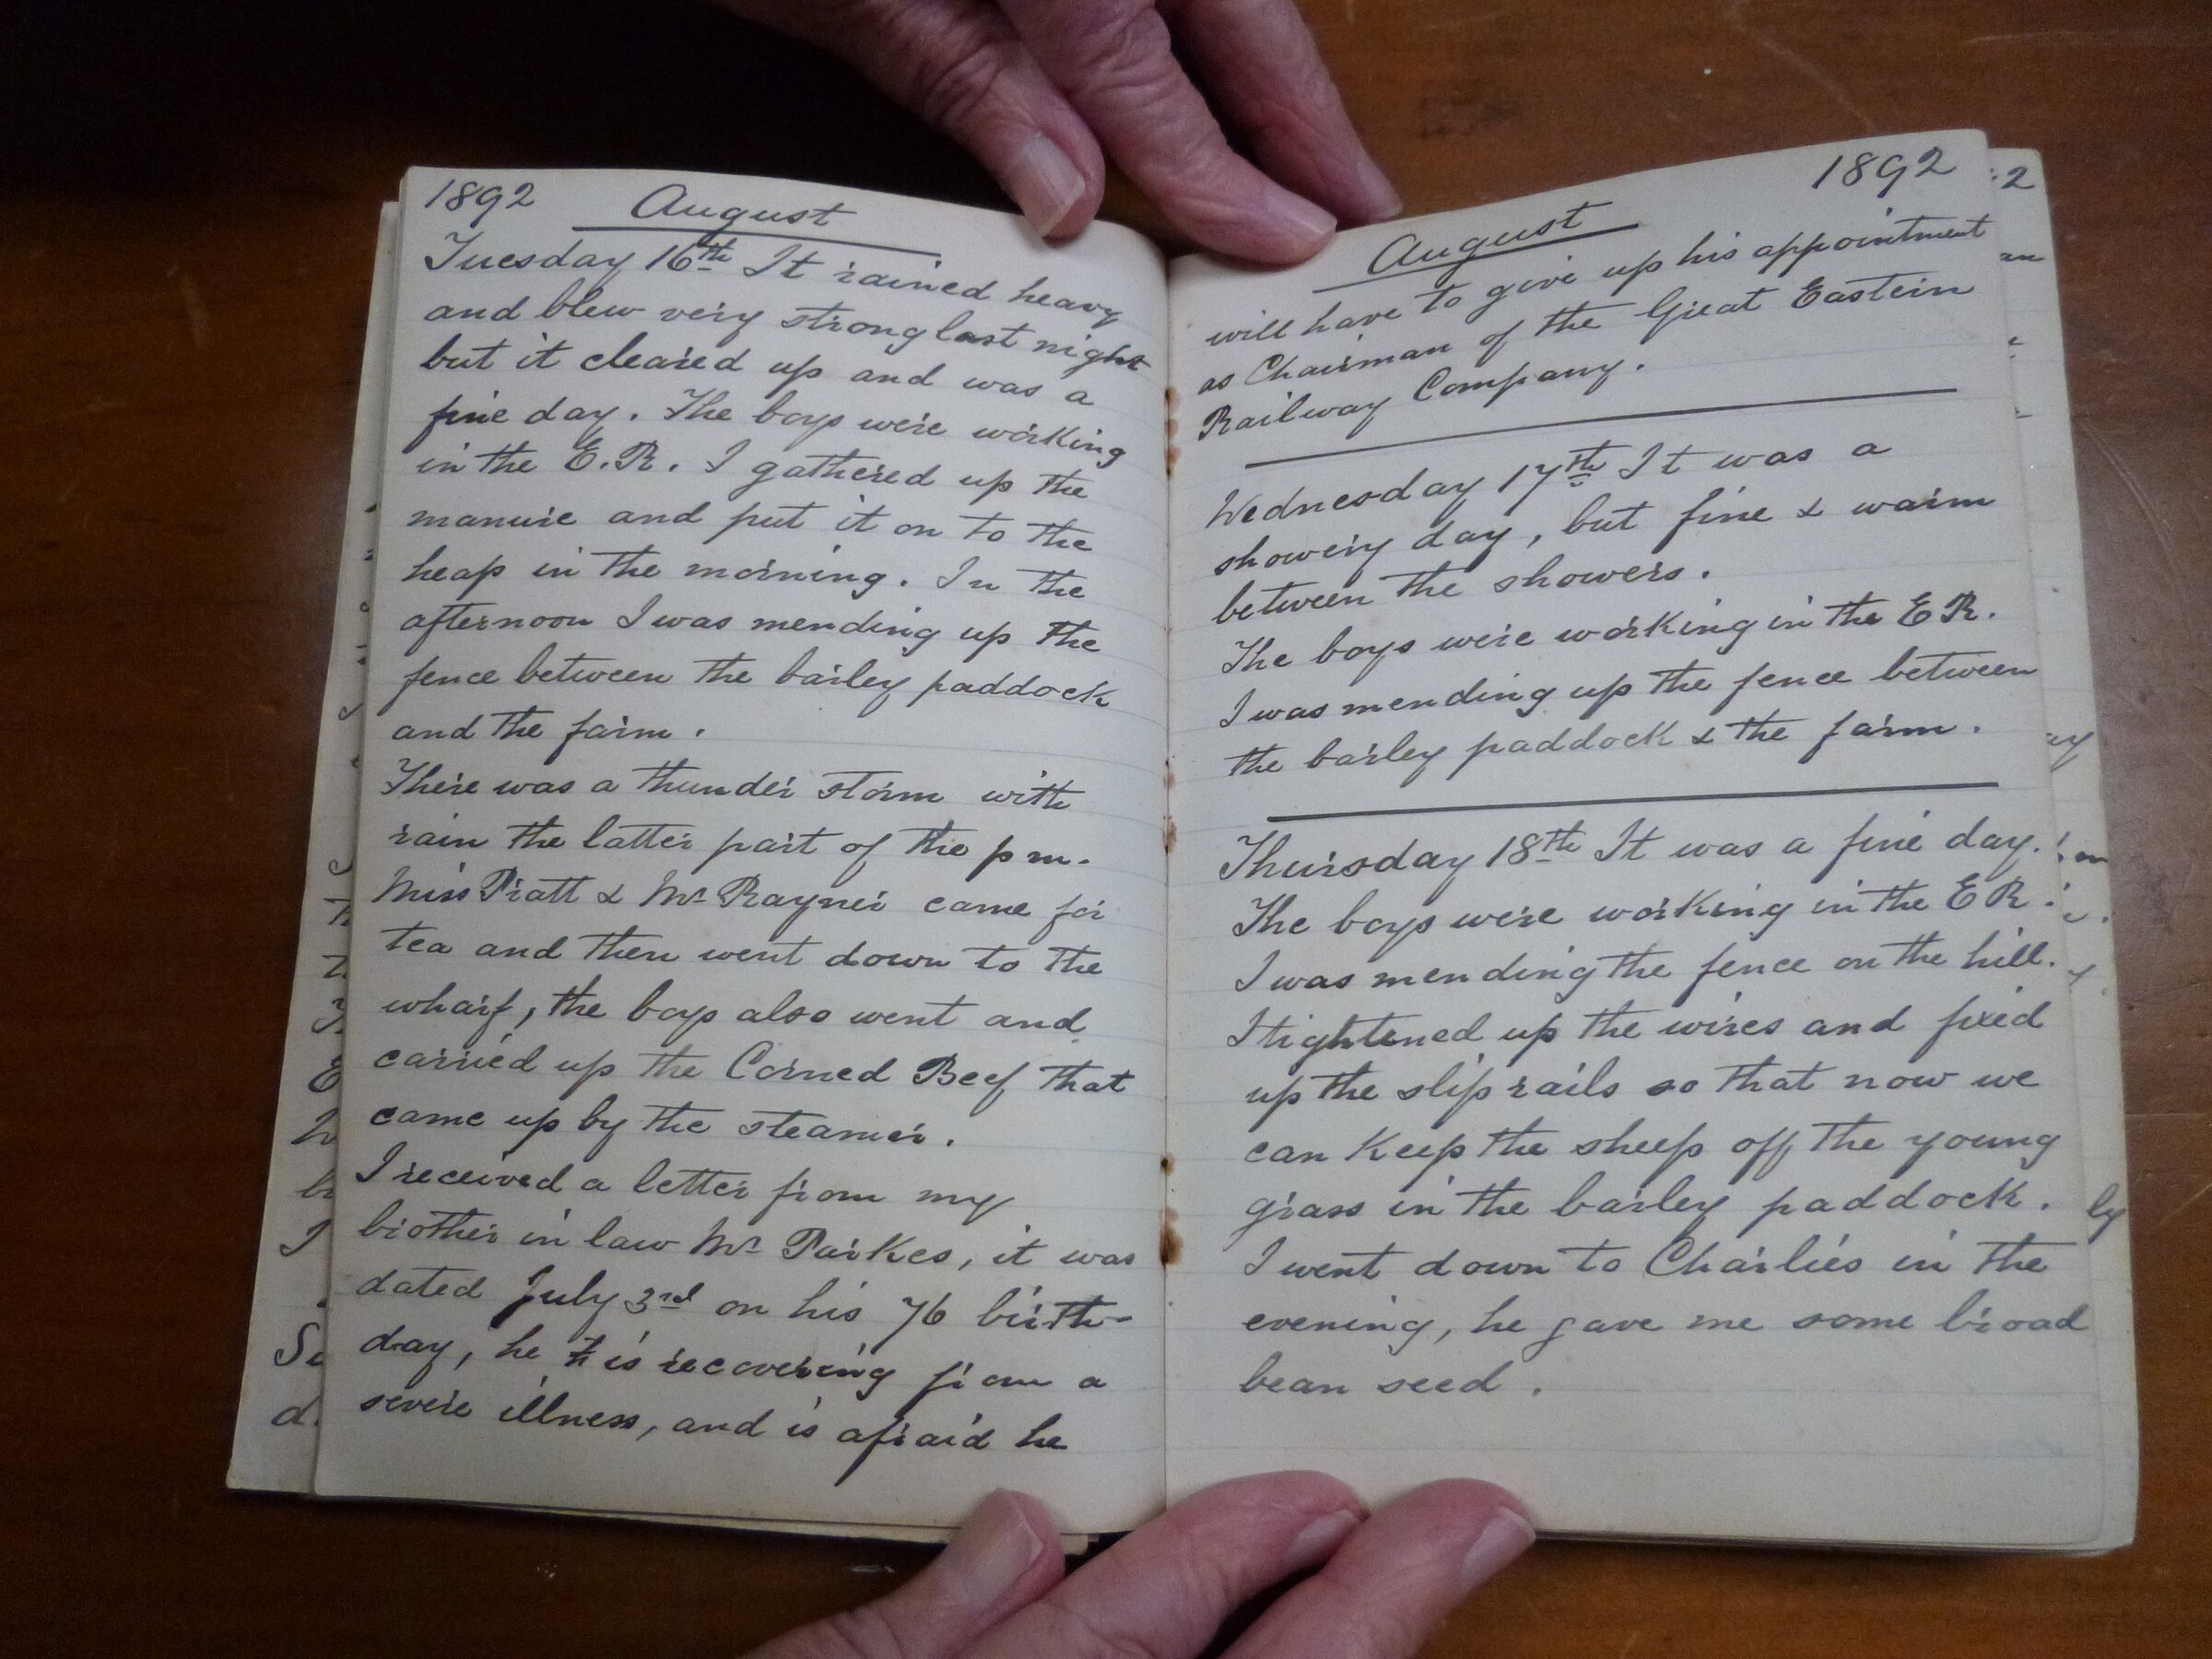 1892 August
Tuesday 16th It rained heavy
and blew very strong last night
but it cleared up and was a
fine day. The boys were working
in the E.R. I gathered up the
manure and put it on to the
heap in the morning. In the
afternoon I was mending up the
fence between the barley paddock
and the farm.
There was a thunder storm with
rain the latter part of the pm.
Miss Pratt & Mr Rayner came for
tea and then went down to the
wharf, the boys also went and
carried up the Corned Beef that
came up by the steamer.
I received a letter from my
brother in law Mr Parkes, it was
dated July 3rd on his 76 birth-
day, he is recovering from a
severe illness, and is afraid he
August 1892
will have to give up his appointment
as Chairman of the Great Eastern
Railway Company.
Wednesday 17th It was a
showery day, but fine & warm
between the showers.
The boys were working in the E R.
I was mending up the fence between
the barley paddock & the farm.
Thursday 18th It was a fine day.
The boys were working in the E R.
I was mending the fence on the hill.
I tightened up the wires and fixed
up the slip rails so that now we
can keep the sheep off the young
grass in the barley paddock.
I went down to Charlie's in the
evening, he gave me some broad
bean seed.